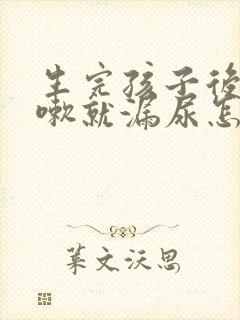 生完孩子後
嗽就漏尿怎
葉文沃思